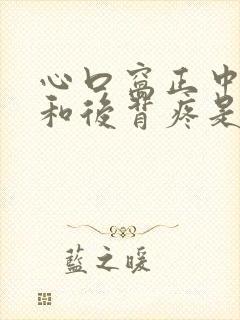 心口窩正中
和後背疼是
藍之暖